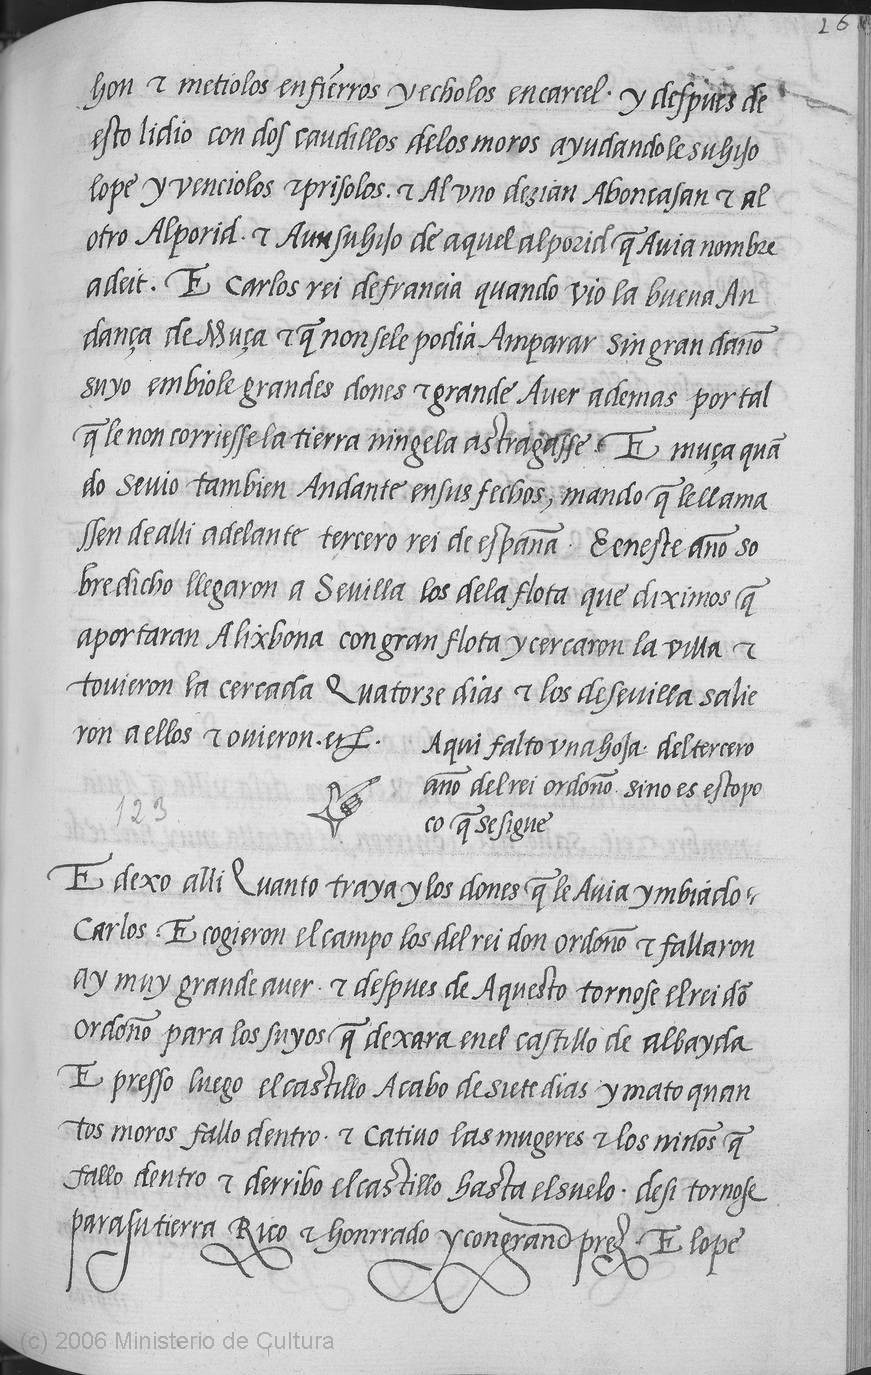 26
hon τ metiolos en fierros y echolos en carcel · y despues de
esto lidio con dos caudillos delos moros ayudandole su hijo
lope y venciolos τ prisolos. τ Al vno dezian Abonçasan τ al
otro Alporid · τ Aun su hijo de aquel alporid q̃ Auia nombre
adeit. E Carlos rei de francia quando vio la buena An
dança de Muça τ q̃ non se le podia Amparar sin gran dano
suyo embiole grandes dones τ grande Auer ademas por tal
q̃ le non corriesse la tierra nin gela astragasse. E muça quã
do se uio tambien Andante en sus fechos, mando q̃ le llama
ssen de alli adelante tercero rei de espana · E en este ano so
bre dicho llegaron a Seuilla los dela flota que diximos q̃
aportaran A lixbona con gran flota y cercaron la villa τ
touieron la cercada Quatorze dias τ los de seuilla salie
ron a ellos τ ouieron.
Aqui falto vna hoja · del tercero
ano del rei ordono. sino es esto po
co q̃ se sigue
123
E dexo alli Quanto traya y los dones q̃ le Auia ymbiádo
Carlos · E cogieron el campo los del rei don ordono τ fallaron
ay muy grande auer · τ despues de Aquesto tornose el rei dõ
ordono para los suyos q̃ dexara en el castillo de albayda
E presso luego el castillo A cabo de siete dias y mato quan
tos moros fallo dentro · τ catiuo las mugeres τ los ninos q̃
fallo dentro τ derribo el castillo hasta el suelo · desi tornose
para su tierra Rico τ honrrado y con grand prez · E lope
(c) 2006 Ministerio de Cultura